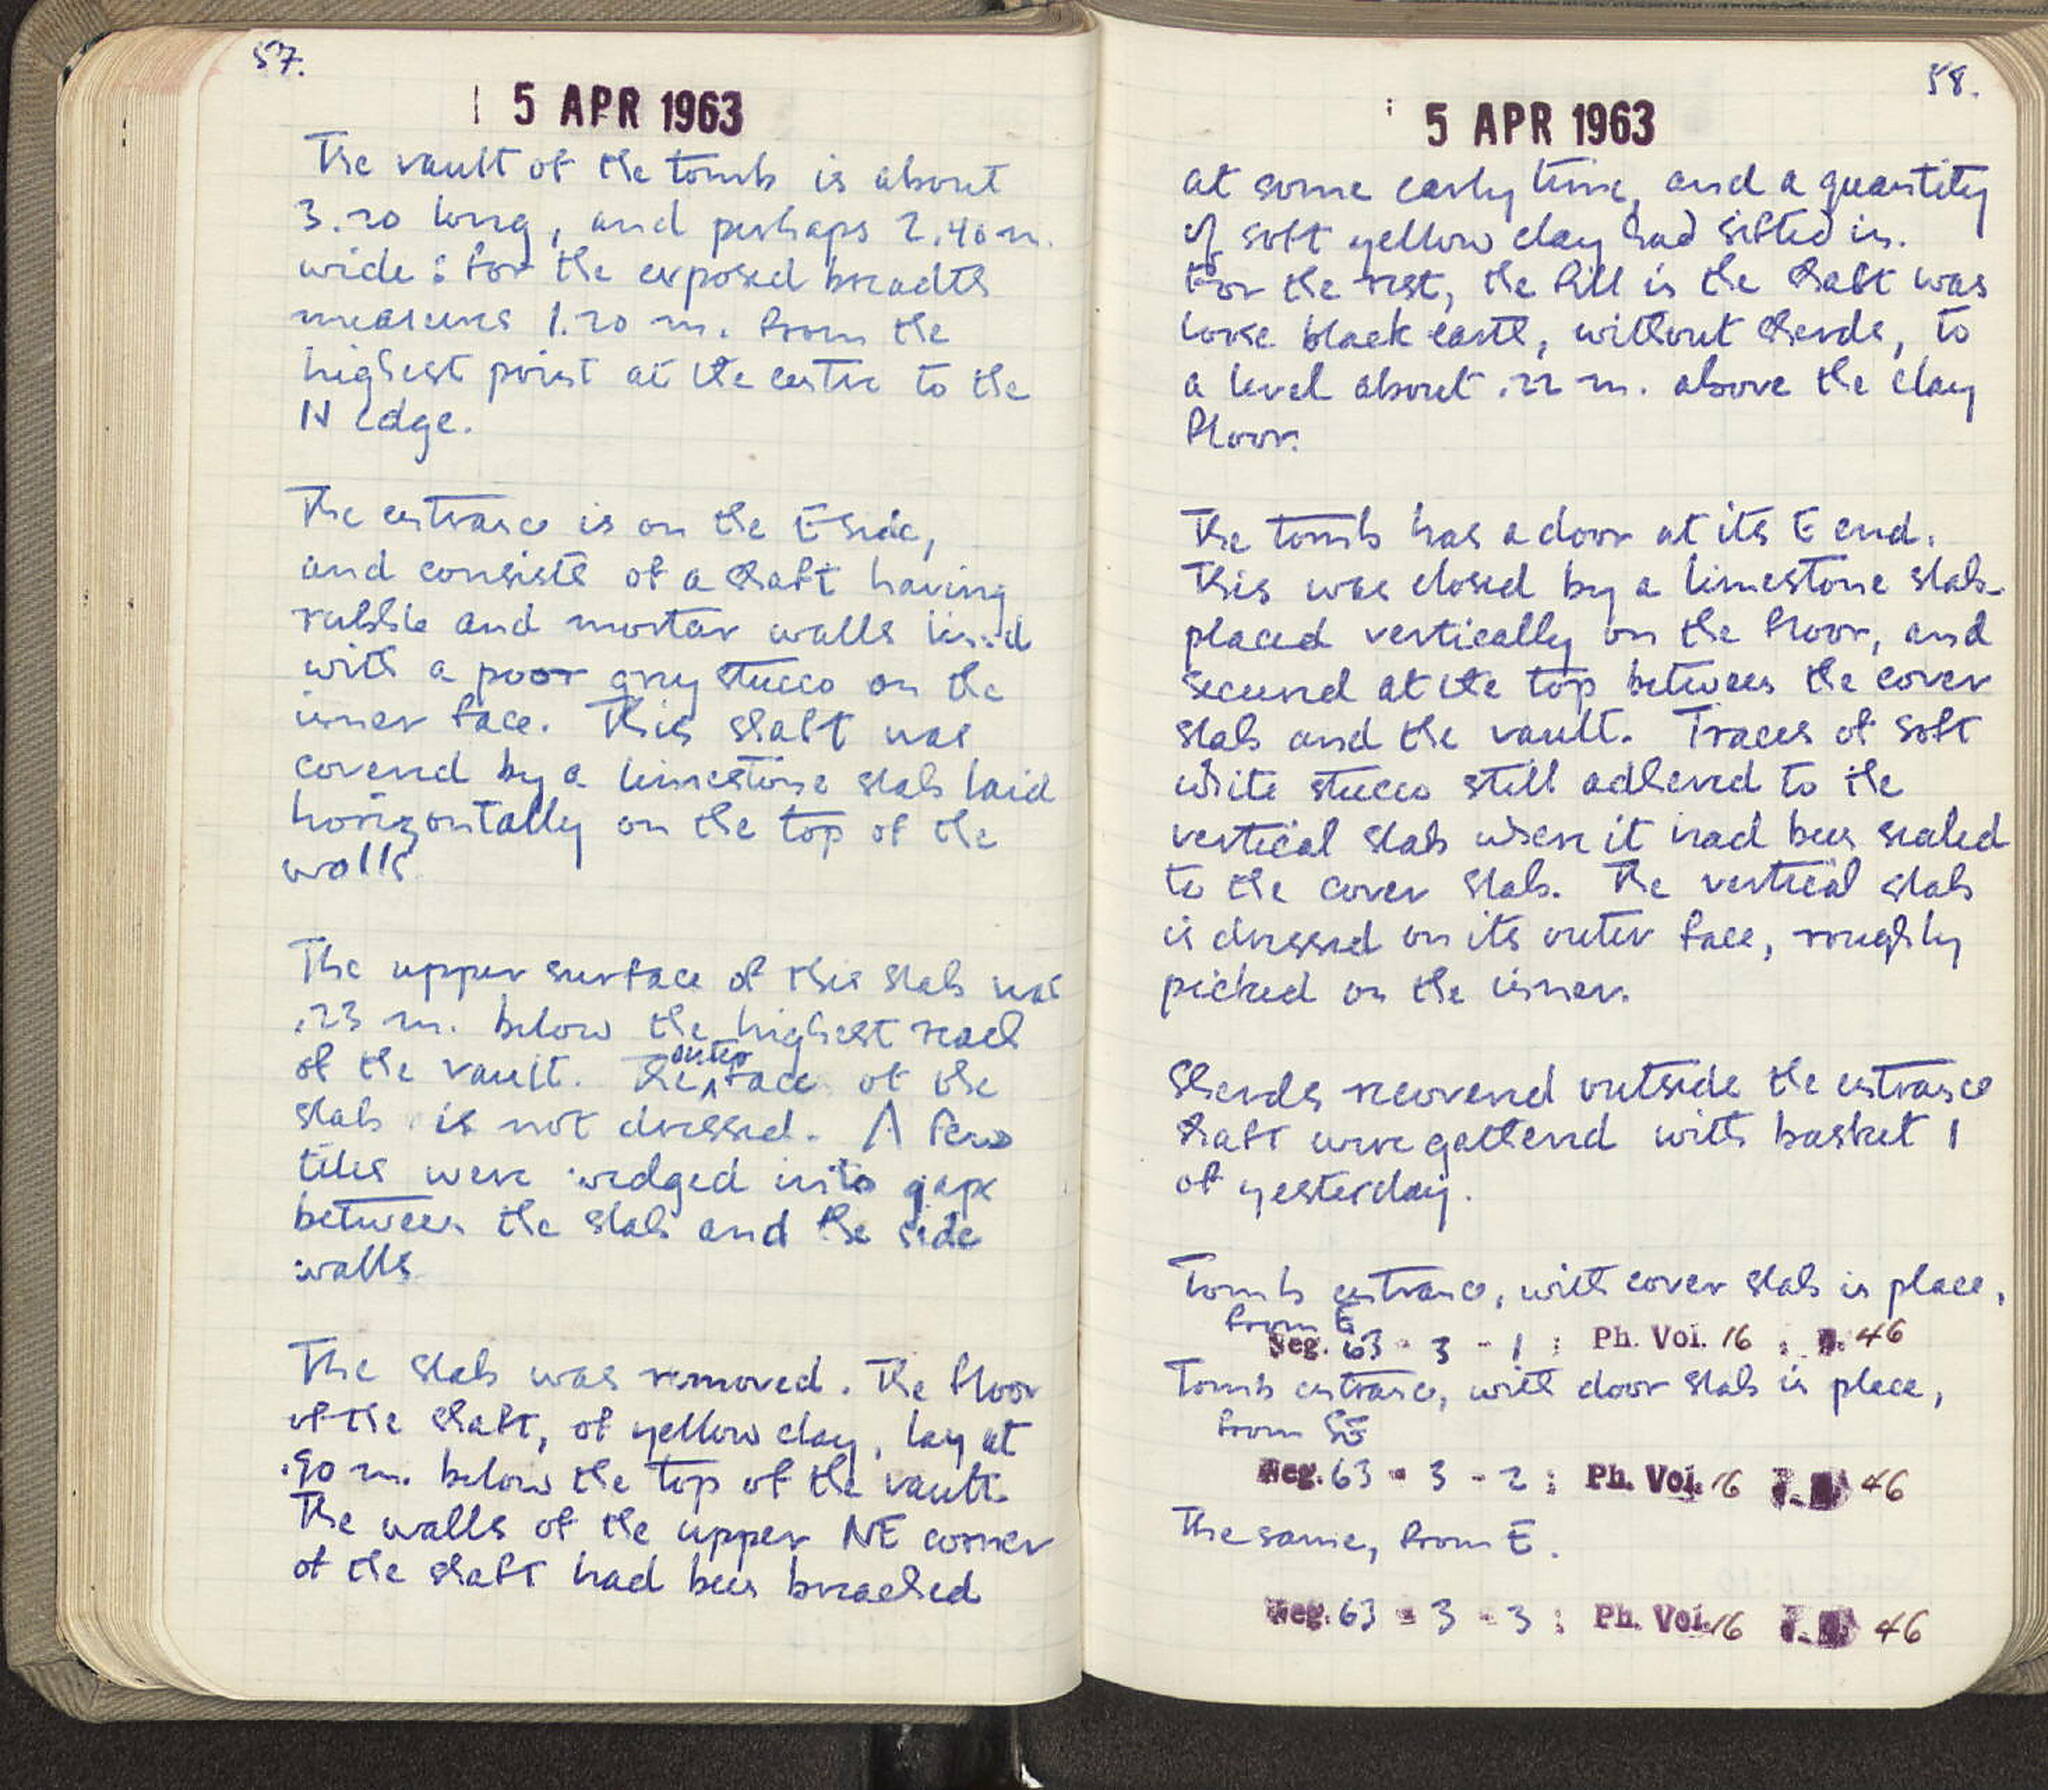 57.
5 APR 1963
The vault of the tomb is about
3.20 long, and perhaps 2.40 m.
wide: for the exposed breadth
measures 1.20 m. from the
highest point at the centre to the
N edge.
The entrance is on the E side,
and consists of a shaft having
rubble and mortar walls lined
with a poor grey stucco on the
inner face. This shaft was
covered by a limestone slab laid
horizontally on the top of the
walls.
The upper surface of this slab was
.23 m. below the highest reach
of the vault. The outer face of the
slab is not dressed. A few
tiles were wedged into gaps
between the slab and the side
walls
The slab was removed. The floor
of the shaft, of yellow clay, lay at
.90 m. below the top of the vault.
The walls of the upper NE corner
of the shaft had been breached
58.
5 APR 1963
at some early time, and a quantity
of soft yellow clay had sifted in.
For the rest, the fill in the shaft was
loose black earth, without sherds, to
a level about .22 m. above the clay
floor.
The tomb has a door at its E end.
This was closed by a limestone slab
placed vertically on the floor, and
secured at the top between the cover
slab and the vault. Traces of soft
white stucco still adhered to the
vertical slab where it had been sealed
to the cover slab. The vertical slab
is dressed on its outer face, roughly
picked on the inner.
Sherds recovered outside the entrance
shaft were gathered with basket 1
of yesterday.
Tomb entrance, with cover slab in place,
from E
Neg. 63 - 3 - 1 : Ph. Vol. 16 : p. 46
Tomb entrance, with door slab in place,
from SE
Neg. 63 - 3 - 2 : Ph. Vol. 16 46
The same, from E.
Neg. 63 - 3 - 3 : Ph. Vol. 16 46